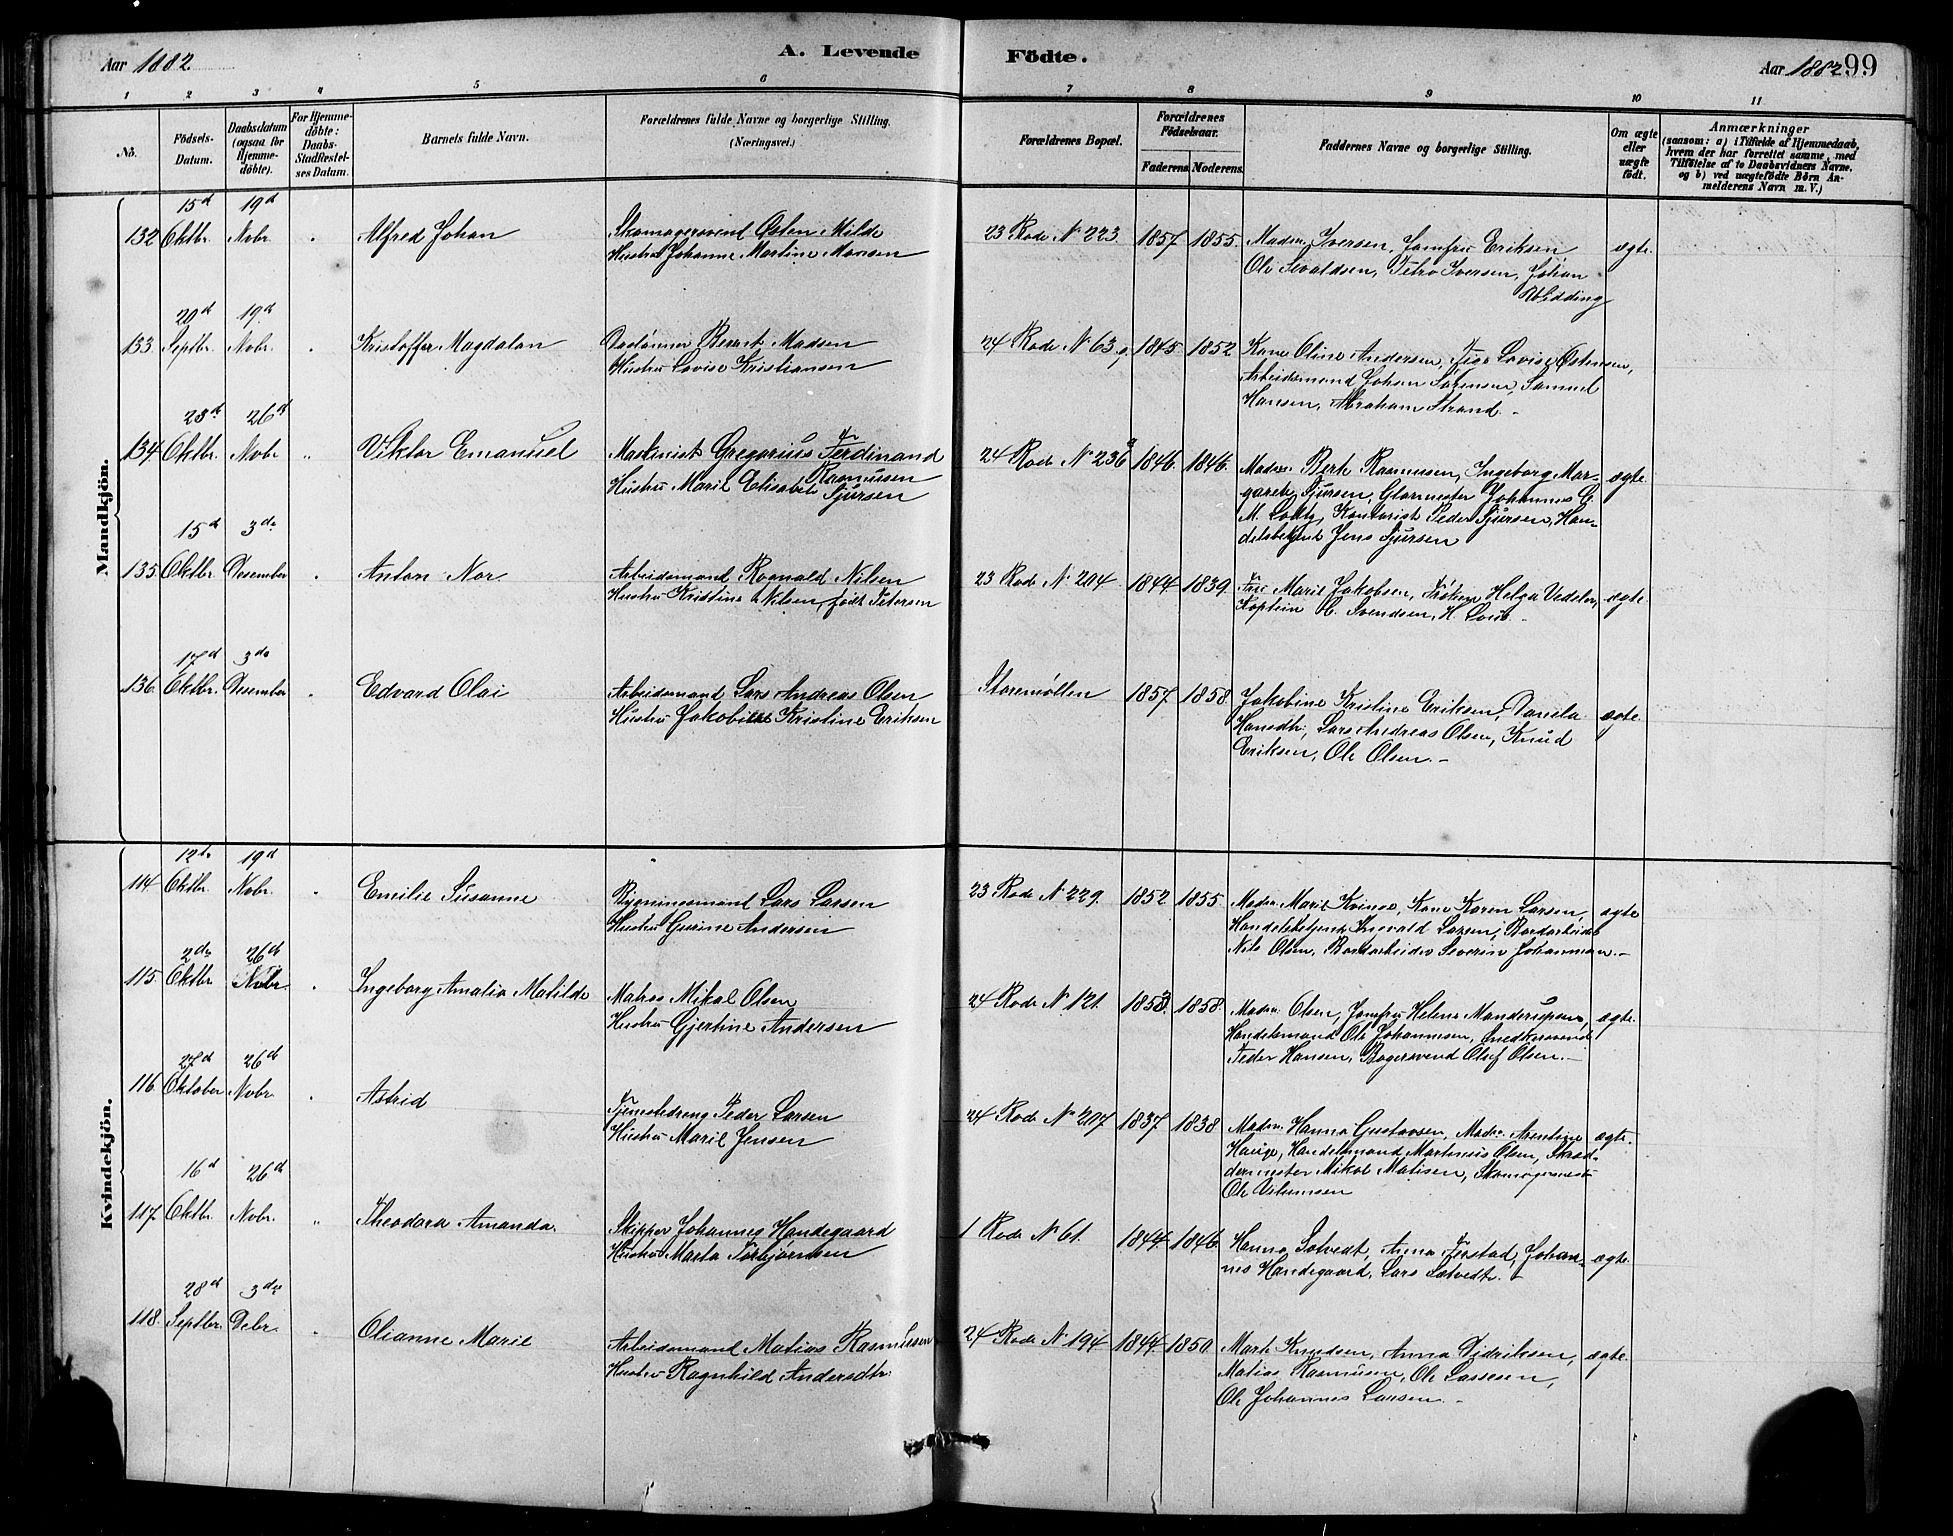 Aar 1882.
A. Levende
Födte.
Aar 1882 99
1 2 3 4 5 6 7 8 9 10 11
No.
Födsels-Datum.
Daabsdatum (ogsaa for Hjemmedöbte).
For Hjemmedöbte: Daabs-Stadfestelses Datum.
Barnets fulde Navn.
Forældrenes fulde Navne og borgerlige Stilling.
(Næringsvei.)
Forældrenes Bopæl.
Forældrenes Födselsaar.
Faderens. Moderens.
Faddernes Navne og borgerlige Stilling.
Om ægte eller uægte födt.
Anmærkninger
(saasom: a) i Tilfælde af Hjemmedaab, hvem der har forrettet samme, med Tilföielse af to Daabsvidners Navne, og b) ved uægtefödte Börn Anmelderens Navn m. V.)
Mandkjön.
15d 19d
132 Oktbr. Nobr. Alfred Johan
Skomagersvend Østen Milde
Hustru Johanne Martine Monsen
23 Rode N 223. 1857. 1855.
Madm. Iversen, Jomfru Eriksen,
Ole Sevaldsen, Petro Iversen, Johan
ægte.
20d 19d
133. Septbr. Nobr. Kristoffer Magdalon
Berent Madsen
Hustru Lovise Kristiansen
24 Rode N 63 1845 1852
Kone Oline Andersen, Pige Lovise Østensen,
Arbeidsmand Johan Sørensen, Samuel
Hansen, Abraham Strand.
23d 26d
134 Oktbr. Nobr. Viktor Emanuel
Maskinist Gregorius Ferdinand
Rasmusen
Hustru Marie Elisabeth Sjursen
24 Rode N 236 1846. 1846.
Madm. Berte Rasmusen, Ingeborg Margarete
Sjursen, Glarmester Johannes C.
M. Kontorist Peder Sjursen, Handelsbetjent
Jens Sjursen
ægte.
15d 3de
135. Oktbr. Desember Anton Nor
Arbeidsmand Romald Nilsen
Hustru Kristine Nilsen, født Petersen
23 Rode N 204. 1844. 1839.
Fru Marie Jakobsen, Frøken Helga Vedeler,
Kaptein C. Svendsen, H.
ægte.
17d 3de
136. Oktbr. Desember Edvard Olai
Arbeidsmand Lars Andreas Olsen
Hustru Jakobine Kristine Eriksen
Storemøllen 1857. 1858.
Jakobine Kristine Eriksen, Daniela
Hansdtr, Lars Andreas Olsen, Knud
Eriksen, Ole Olsen.
ægte.
Kvindekjön.
12te 19d
114 Oktbr. Nobr. Emilie Susanne
Bygningsmand Lars Larsen
Hustru Gurine Andersen
23 Rode N 229. 1852 1855.
Madm. Marie Kvinge, Kone Karen Larsen,
Handelsbetjent Ingvald Larsen,
Nils Olsen, Severin Johannesen.
ægte
2den 26d
115. Oktbr. Nobr. Ingeborg Amalia Matilde
Matros Mikal Olsen
Hustru Gjertine Andersen
24 Rode N 121. 1853. 1858.
Madm. Olsen, Jomfru Helene Manderupsen,
Handelsmand Ole Johannesen, Snedkersvend
Peder Hansen, Bagersvend Olef Olsen.
ægte.
27d 26d
116 Oktober Nobr. Astrid
Tjenestedreng Peder Larsen
Hustru Marie Jensen
24 Rode N 207 1837. 1838
Madm. Hanna Gustavsen, Madm. Arentine
Hauge, Handelsmand Martinius Olsen, Skræddermester
Mikal Matisen, Skomagermester
Ole
ægte.
16d 26d
117. Oktbr. Nobr. Theodora Amanda.
Skipper Johannes Handegaard
Hustru Marta Torbjørnsen
1 Rode N 61. 1844. 1846.
Hanna Solvedt, Anna Jerstad, Johannes
Handegaard, Lars Solvedt.
ægte.
28d 3de
118. Septbr. Debr. Olianne Marie
Arbeidsmand Matias Rasmusen
Hustru Ragnhild Andersdtr.
24 Rode N 194 1844. 1850.
Marte Knudsen, Anna Didriksen,
Matias Rasmusen, Ole Lassesen,
Ole Johannes Larsen.
ægte.